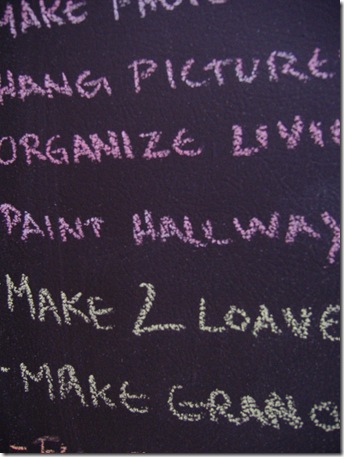 MAKE
HANG PICTURE
ORGANIZE LIVI
PAINT HALLWAY
MAKE 2 LOAVE
-MAKE GRANO